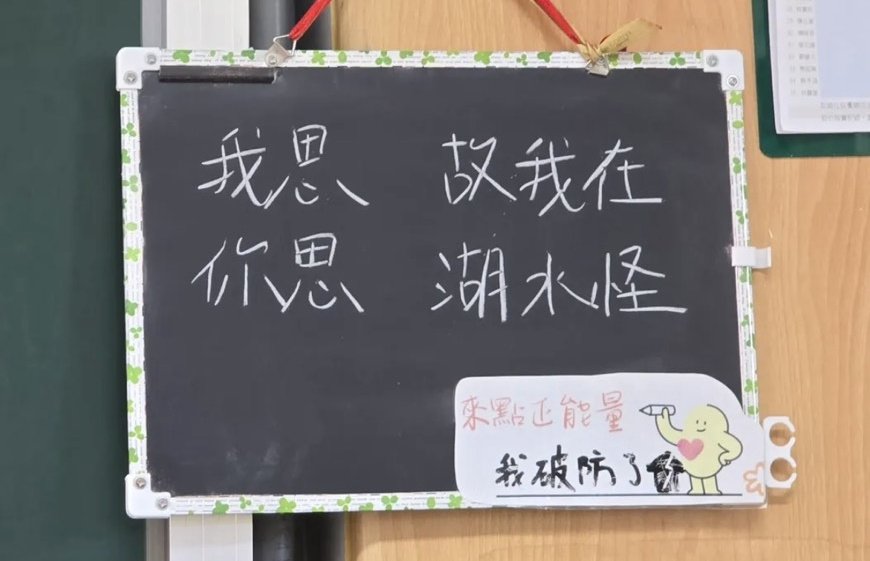 我思 故我在
你思 湖水怪
來點正能量
我破防了